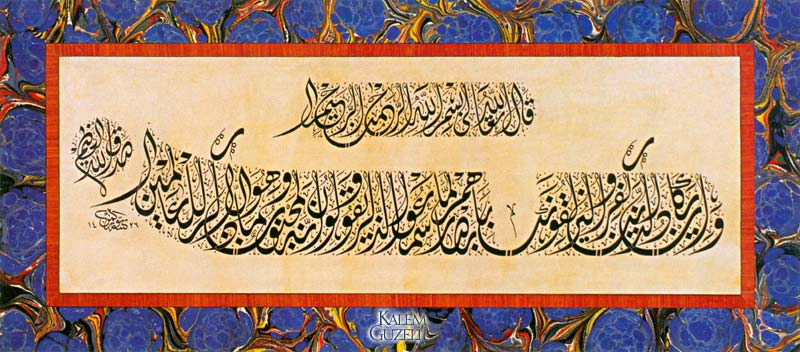 قال الله تعالى بسم الله الرحمن الرحيم
وإن يكاد الذين كفروا ليزلقونك بأبصارهم لما سمعوا الذكر ويقولون إنه لمجنون وما هو إلا ذكر للعالمين
صدق الله العظيم
KALEM
GUZELI